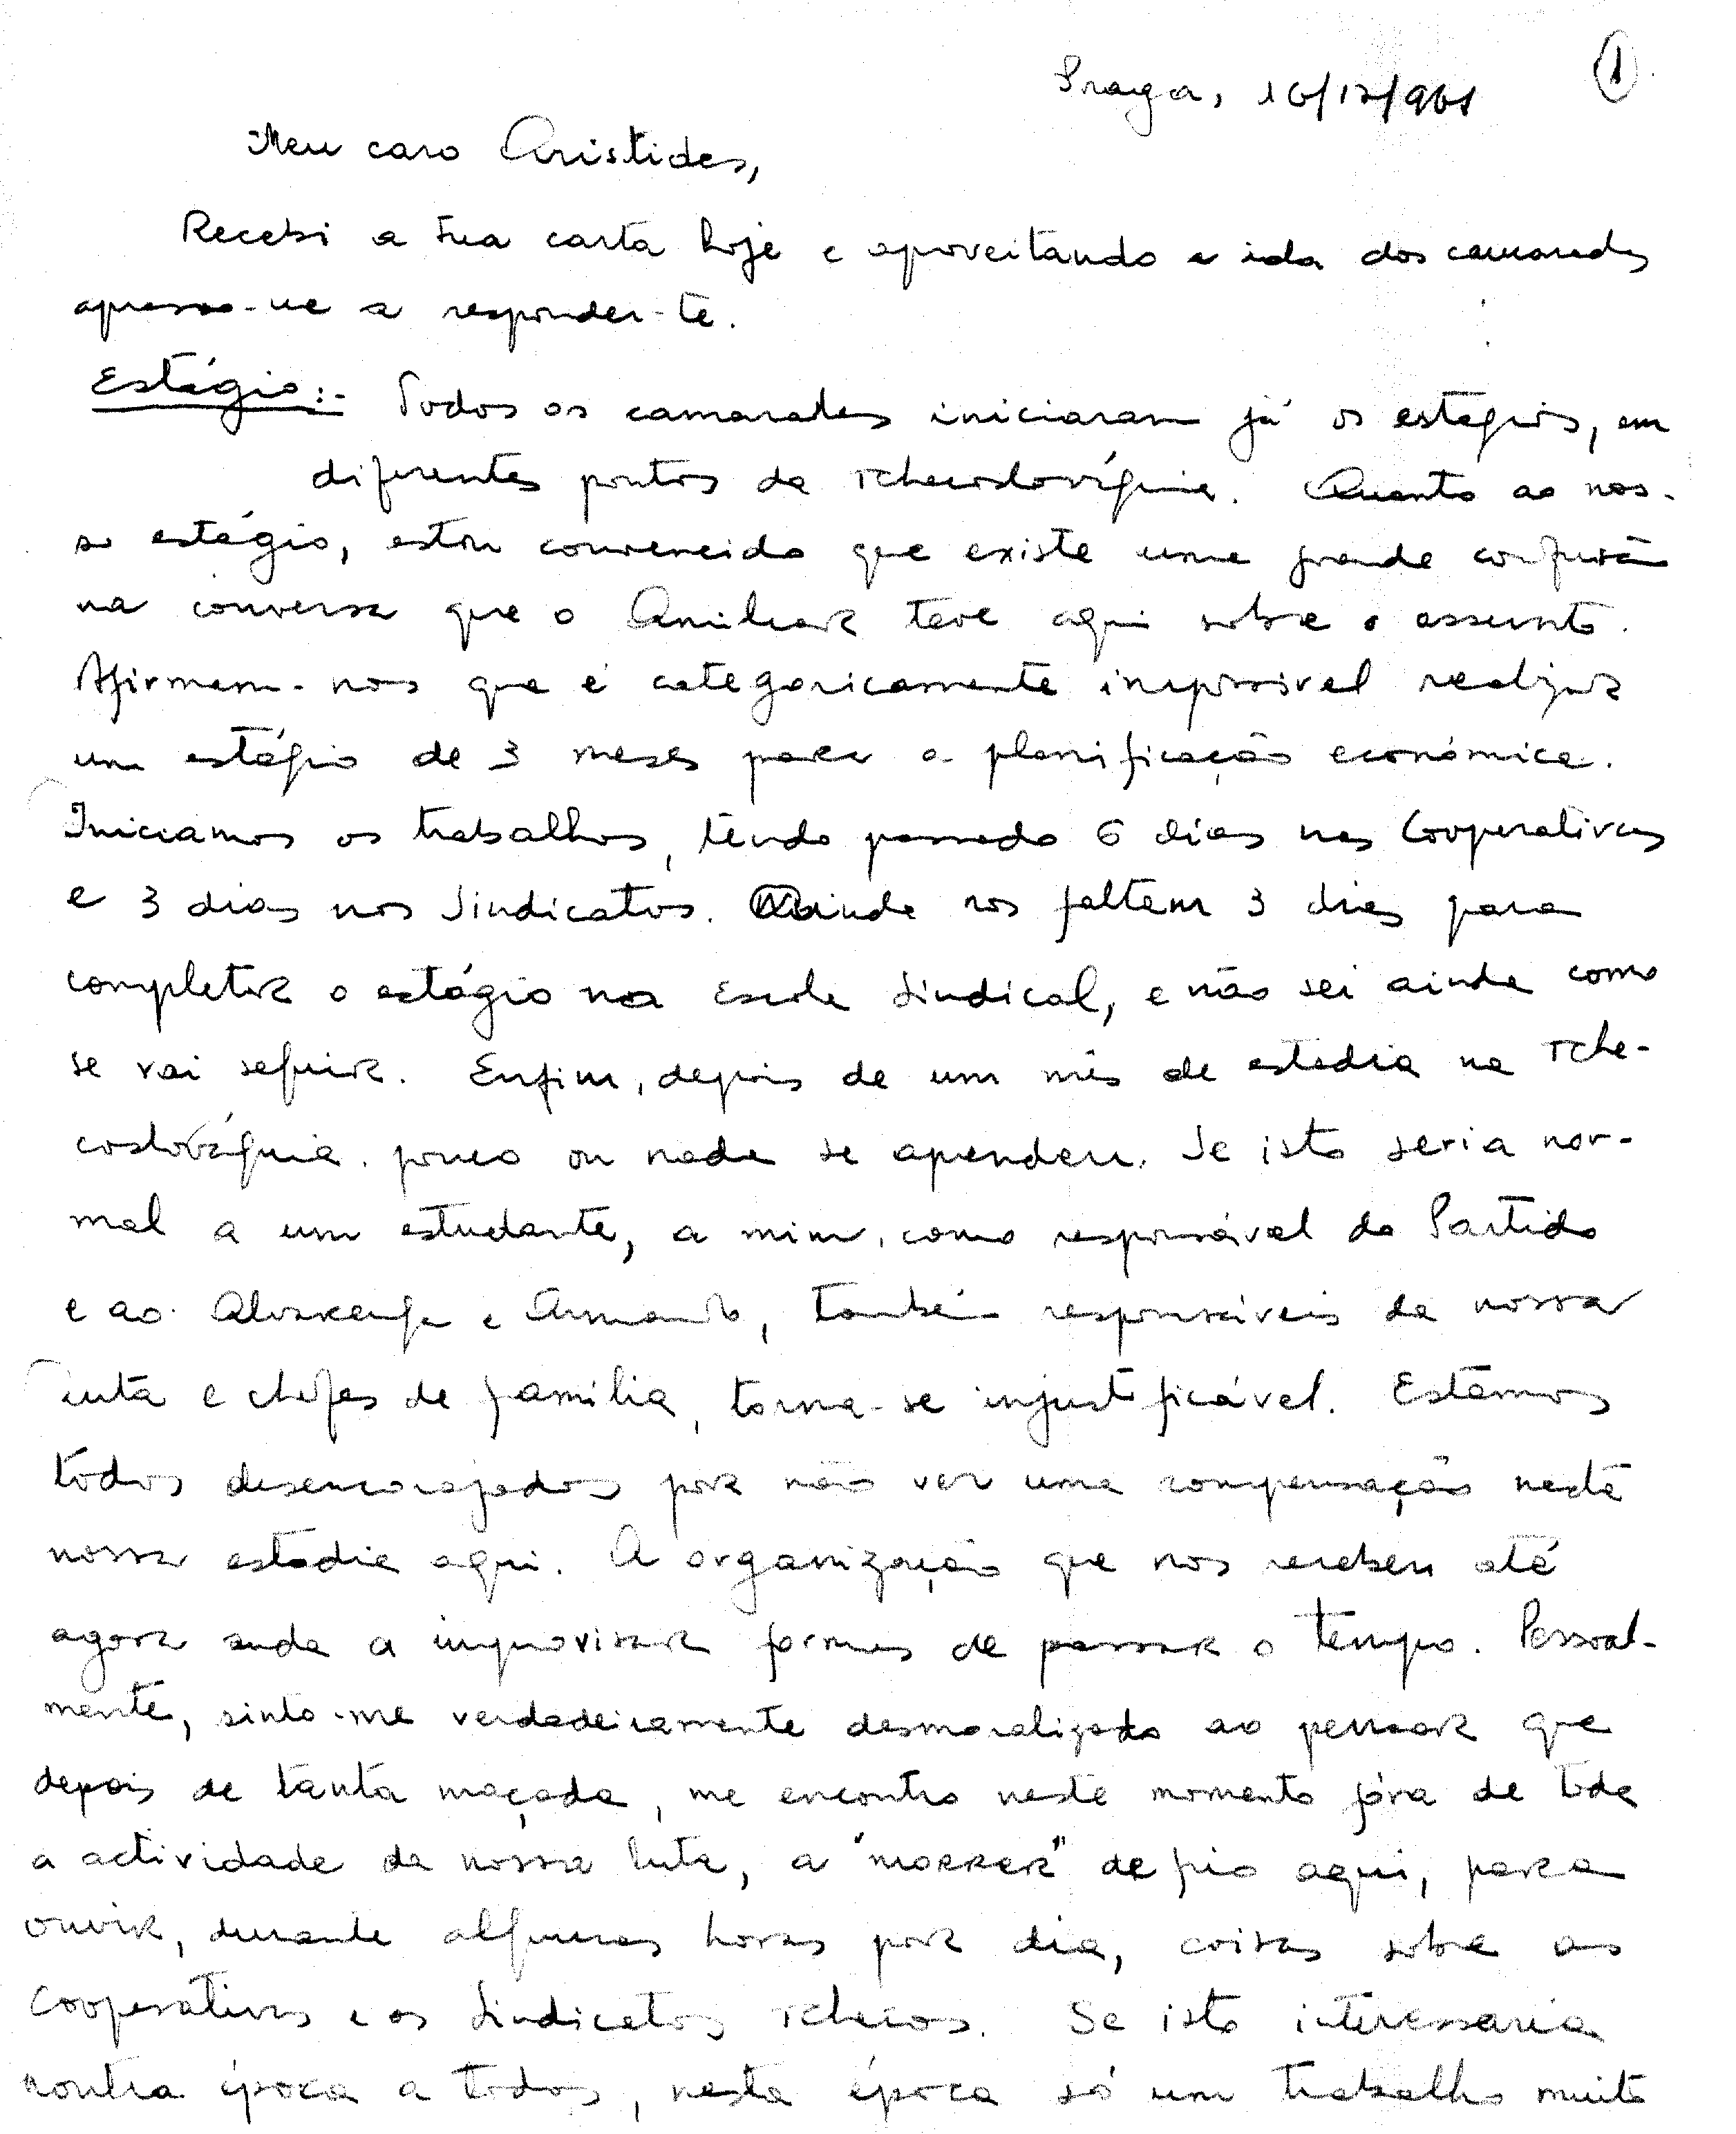 1
Praga, 16/12/961
Meu caro Aristides,
Recebi a tua carta hoje e aproveitando a ida dos camaradas
apresso-me a responder-te.
Estágio:- Todos os camaradas iniciaram já os estágios, em
diferentes pontos da Tchecoslováquia. Quanto ao nos-
so estágio, estou convencido que existe uma grande confusão
na conversa que o Amilcar teve aqui sobre o assunto.
Afirmam-nos que é categoricamente impossível realizar
um estágio de 3 meses para a planificação económica.
Iniciamos os trabalhos, tendo passado 6 dias nas Cooperativas
e 3 dias nos Sindicatos. Ainda nos faltam 3 dias para
completar o estágio na Escola Sindical, e não sei ainda como
se vai seguir. Enfim, depois de um mês de estadia na Tche-
coslováquia, pouco ou nada se aprendeu. Se isto seria nor-
mal a um estudante, a mim, como responsável do Partido
e ao Alvarenga e Armando, também responsáveis da nossa
luta e chefes de família, torna-se injustificável. Estamos
todos desencorajados por não ver uma compensação nesta
nossa estadia aqui. A organização que nos recebeu até
agora anda a improvisar formas de passar o tempo. Pessoal-
mente, sinto-me verdadeiramente desmoralizado ao pensar que
depois de tanta maçada, me encontro neste momento fóra de toda
a actividade da nossa luta, a "morrer" de frio aqui, para
ouvir, durante algumas horas por dia, coisas sobre as
Cooperativas e os Sindicatos Tchecos. Se isto interessaria
noutra época a todos, nesta época só um trabalho muito